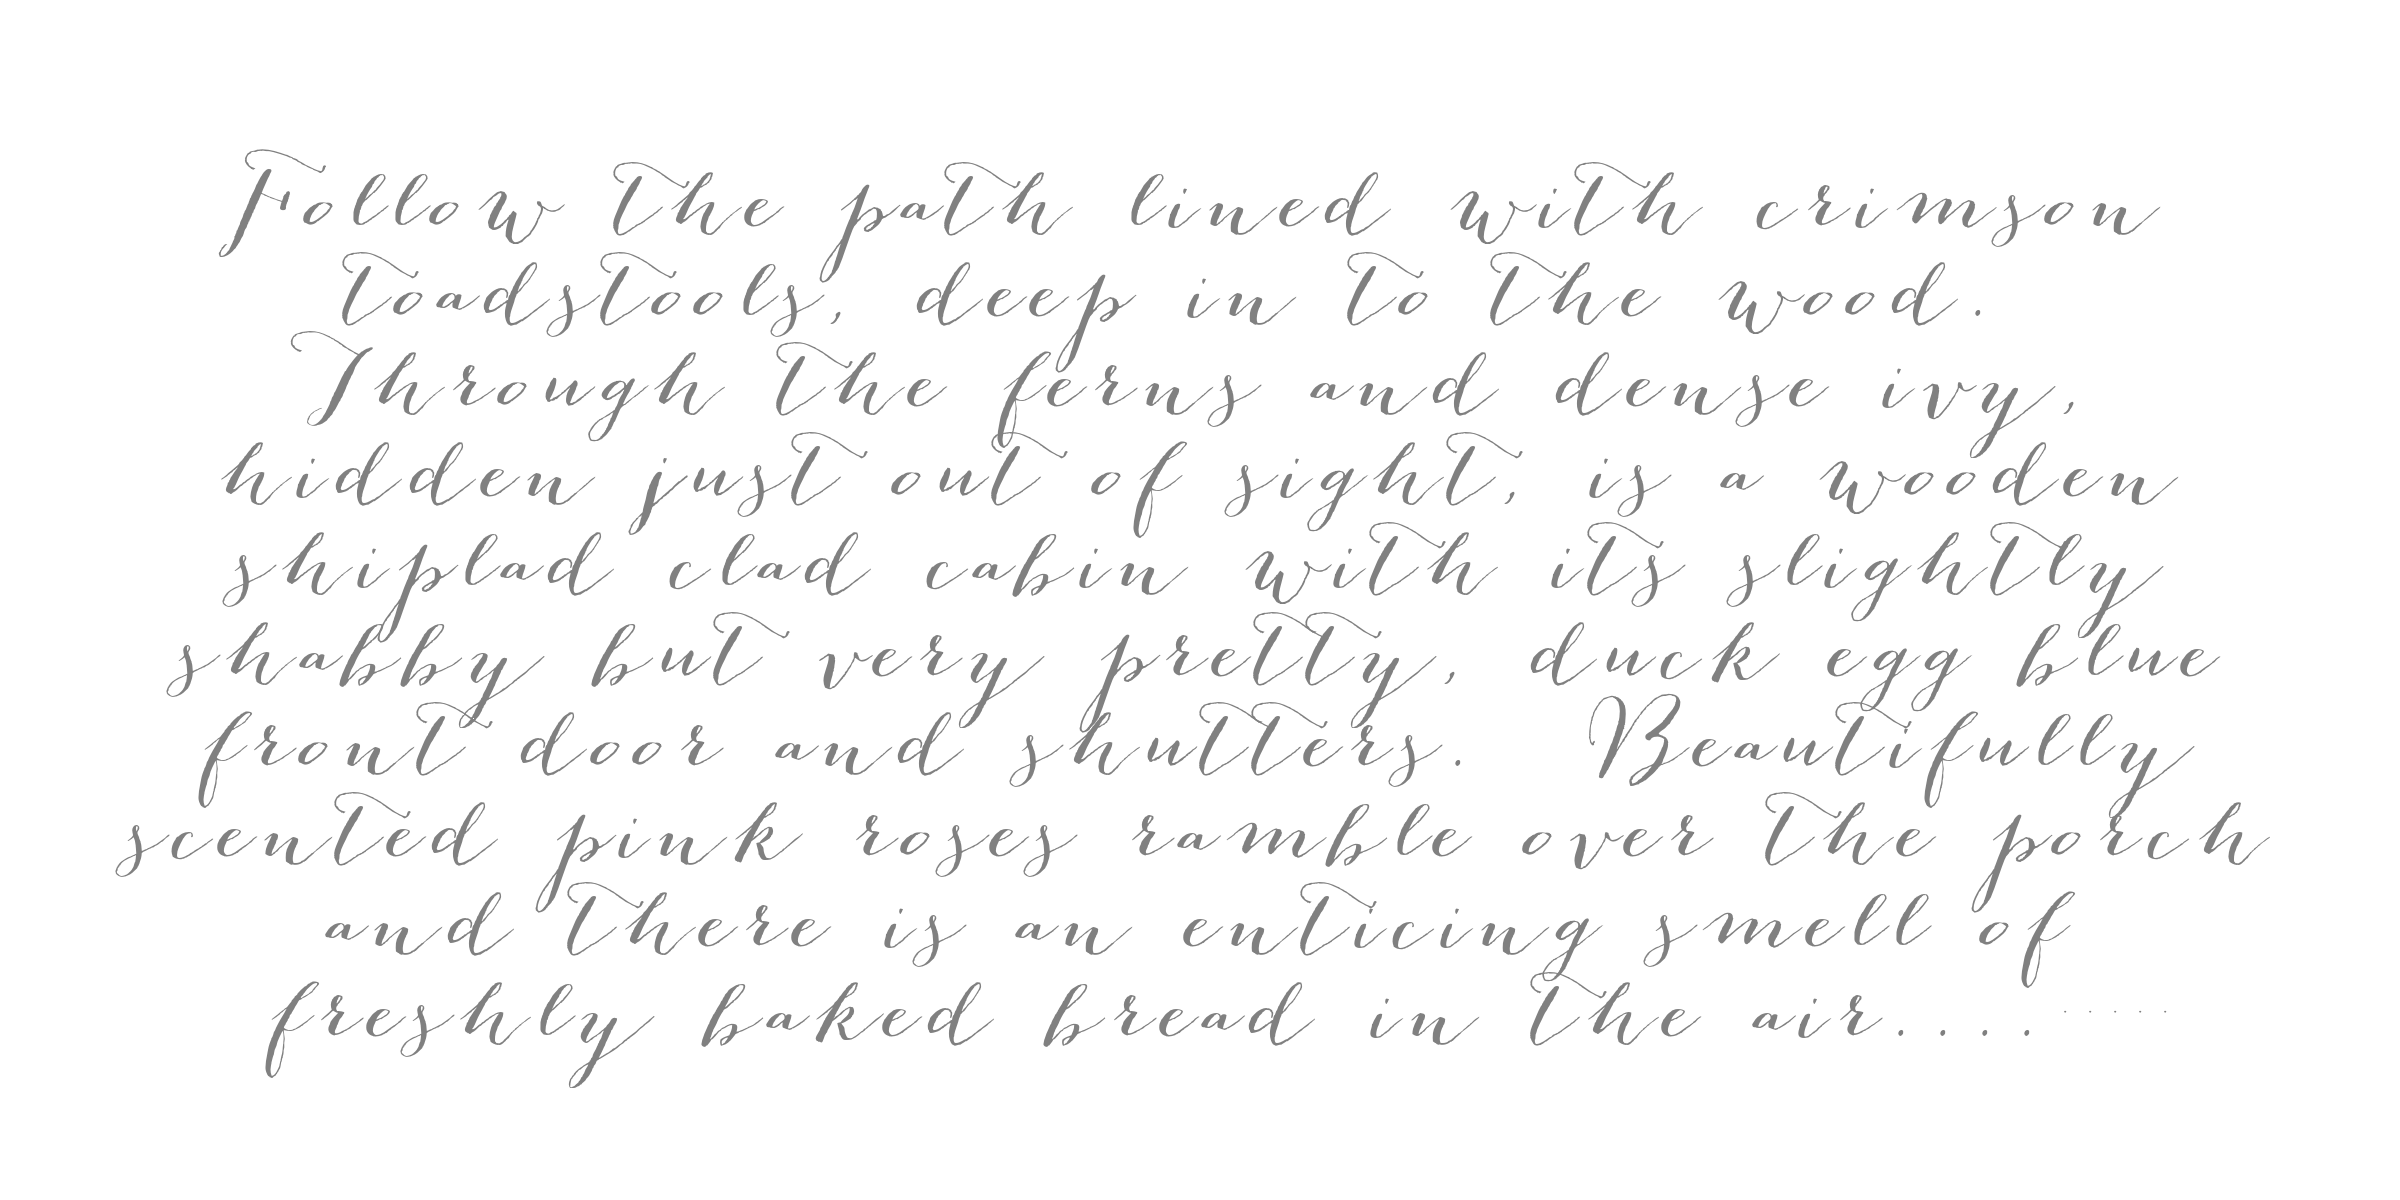 Follow the path lined with crimson
toadstools, deep in to the wood.
Through the ferns and dense ivy,
hidden just out of sight, is a wooden
shiplad clad cabin with its slightly
shabby but very pretty, duck egg blue
front door and shutters.  Beautifully
scented pink roses ramble over the porch
and there is an enticing smell of
freshly baked bread in the air.........